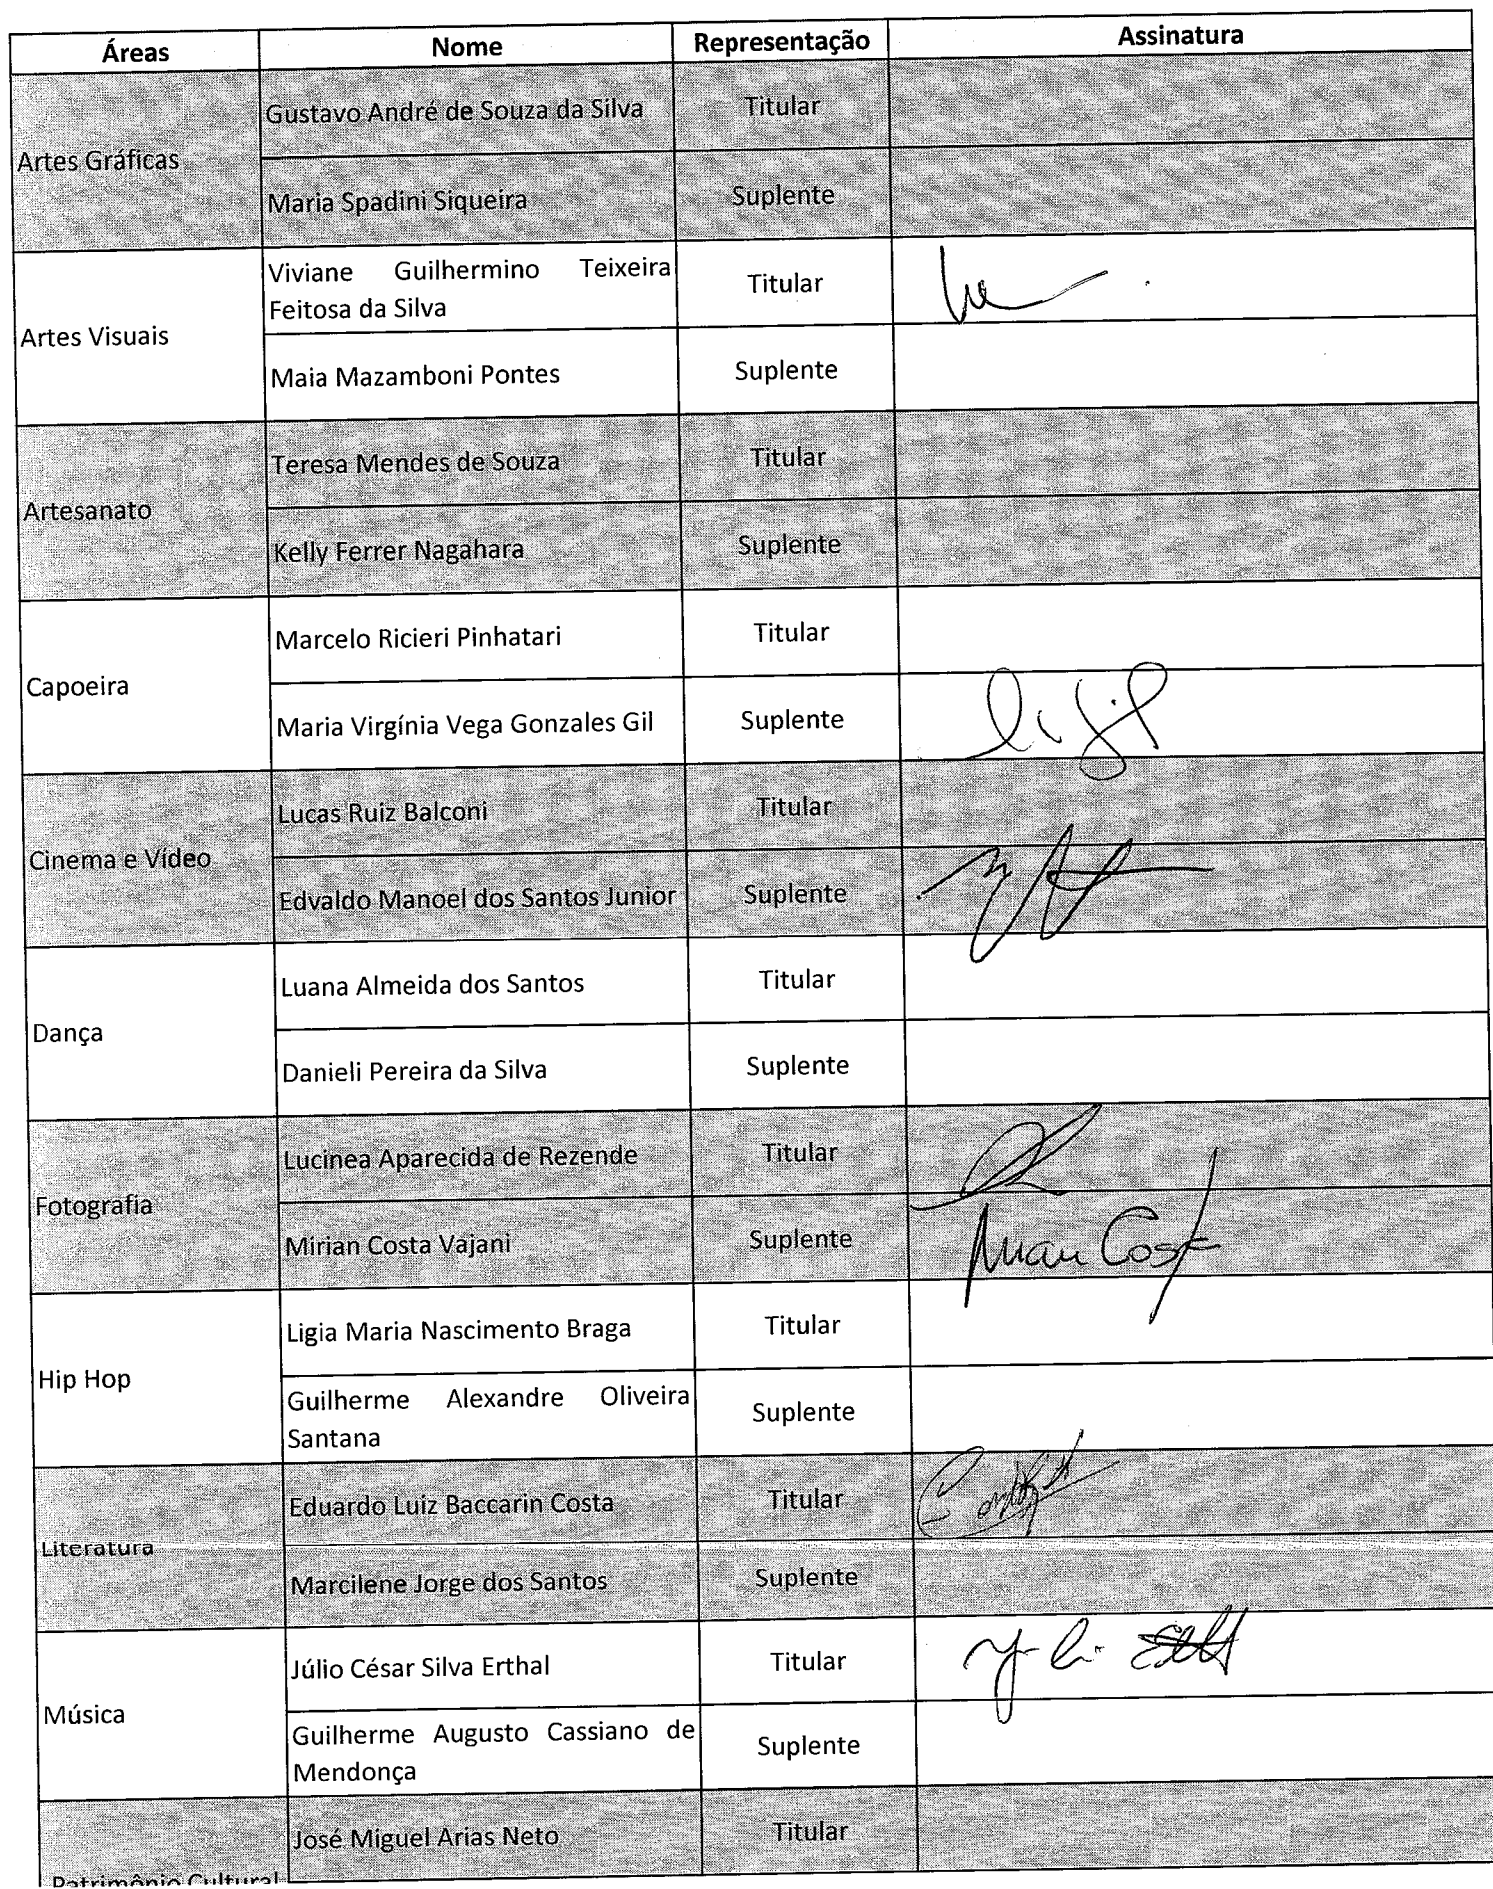 Áreas Nome Representação Assinatura
Artes Gráficas
Gustavo André de Souza da Silva Titular
Maria Spadini Siqueira Suplente
Artes Visuais
Viviane Guilhermino Teixeira
Feitosa da Silva Titular
Maia Mazamboni Pontes Suplente
Artesanato
Teresa Mendes de Souza Titular
Kelly Ferrer Nagahara Suplente
Capoeira
Marcelo Ricieri Pinhatari Titular
Maria Virgínia Vega Gonzales Gil Suplente
Cinema e Vídeo
Lucas Ruiz Balconi Titular
Edvaldo Manoel dos Santos Junior Suplente
Dança
Luana Almeida dos Santos Titular
Danieli Pereira da Silva Suplente
Fotografia
Lucinea Aparecida de Rezende Titular
Mirian Costa Vajani Suplente
Hip Hop
Ligia Maria Nascimento Braga Titular
Guilherme Alexandre Oliveira
Santana Suplente
Literatura
Eduardo Luiz Baccarin Costa Titular
Marcilene Jorge dos Santos Suplente
Música
Júlio César Silva Erthal Titular
Guilherme Augusto Cassiano de
Mendonça Suplente
José Miguel Arias Neto Titular
Patrimônio Cultural